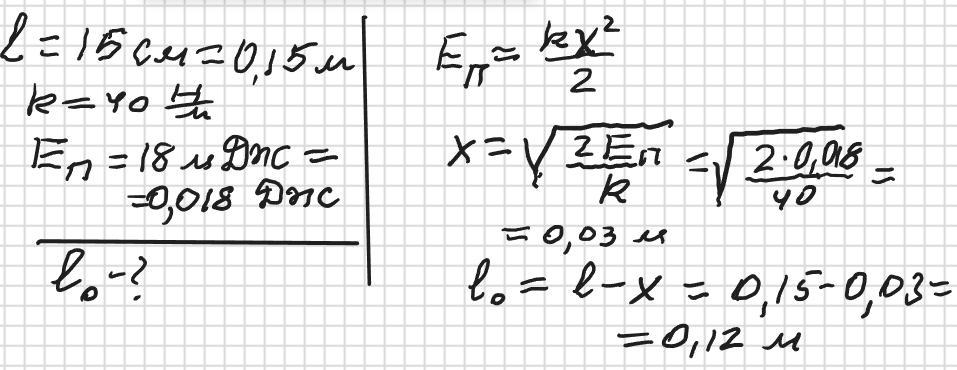 l = 15 см = 0,15 м
k = 40 Н/м
Eп = 18 мДж =
= 0,018 Дж
l₀ - ?
Eп = kx²/2
x = √(2Eп/k) = √(2·0,018/40) =
= 0,03 м
l₀ = l - x = 0,15 - 0,03 =
= 0,12 м